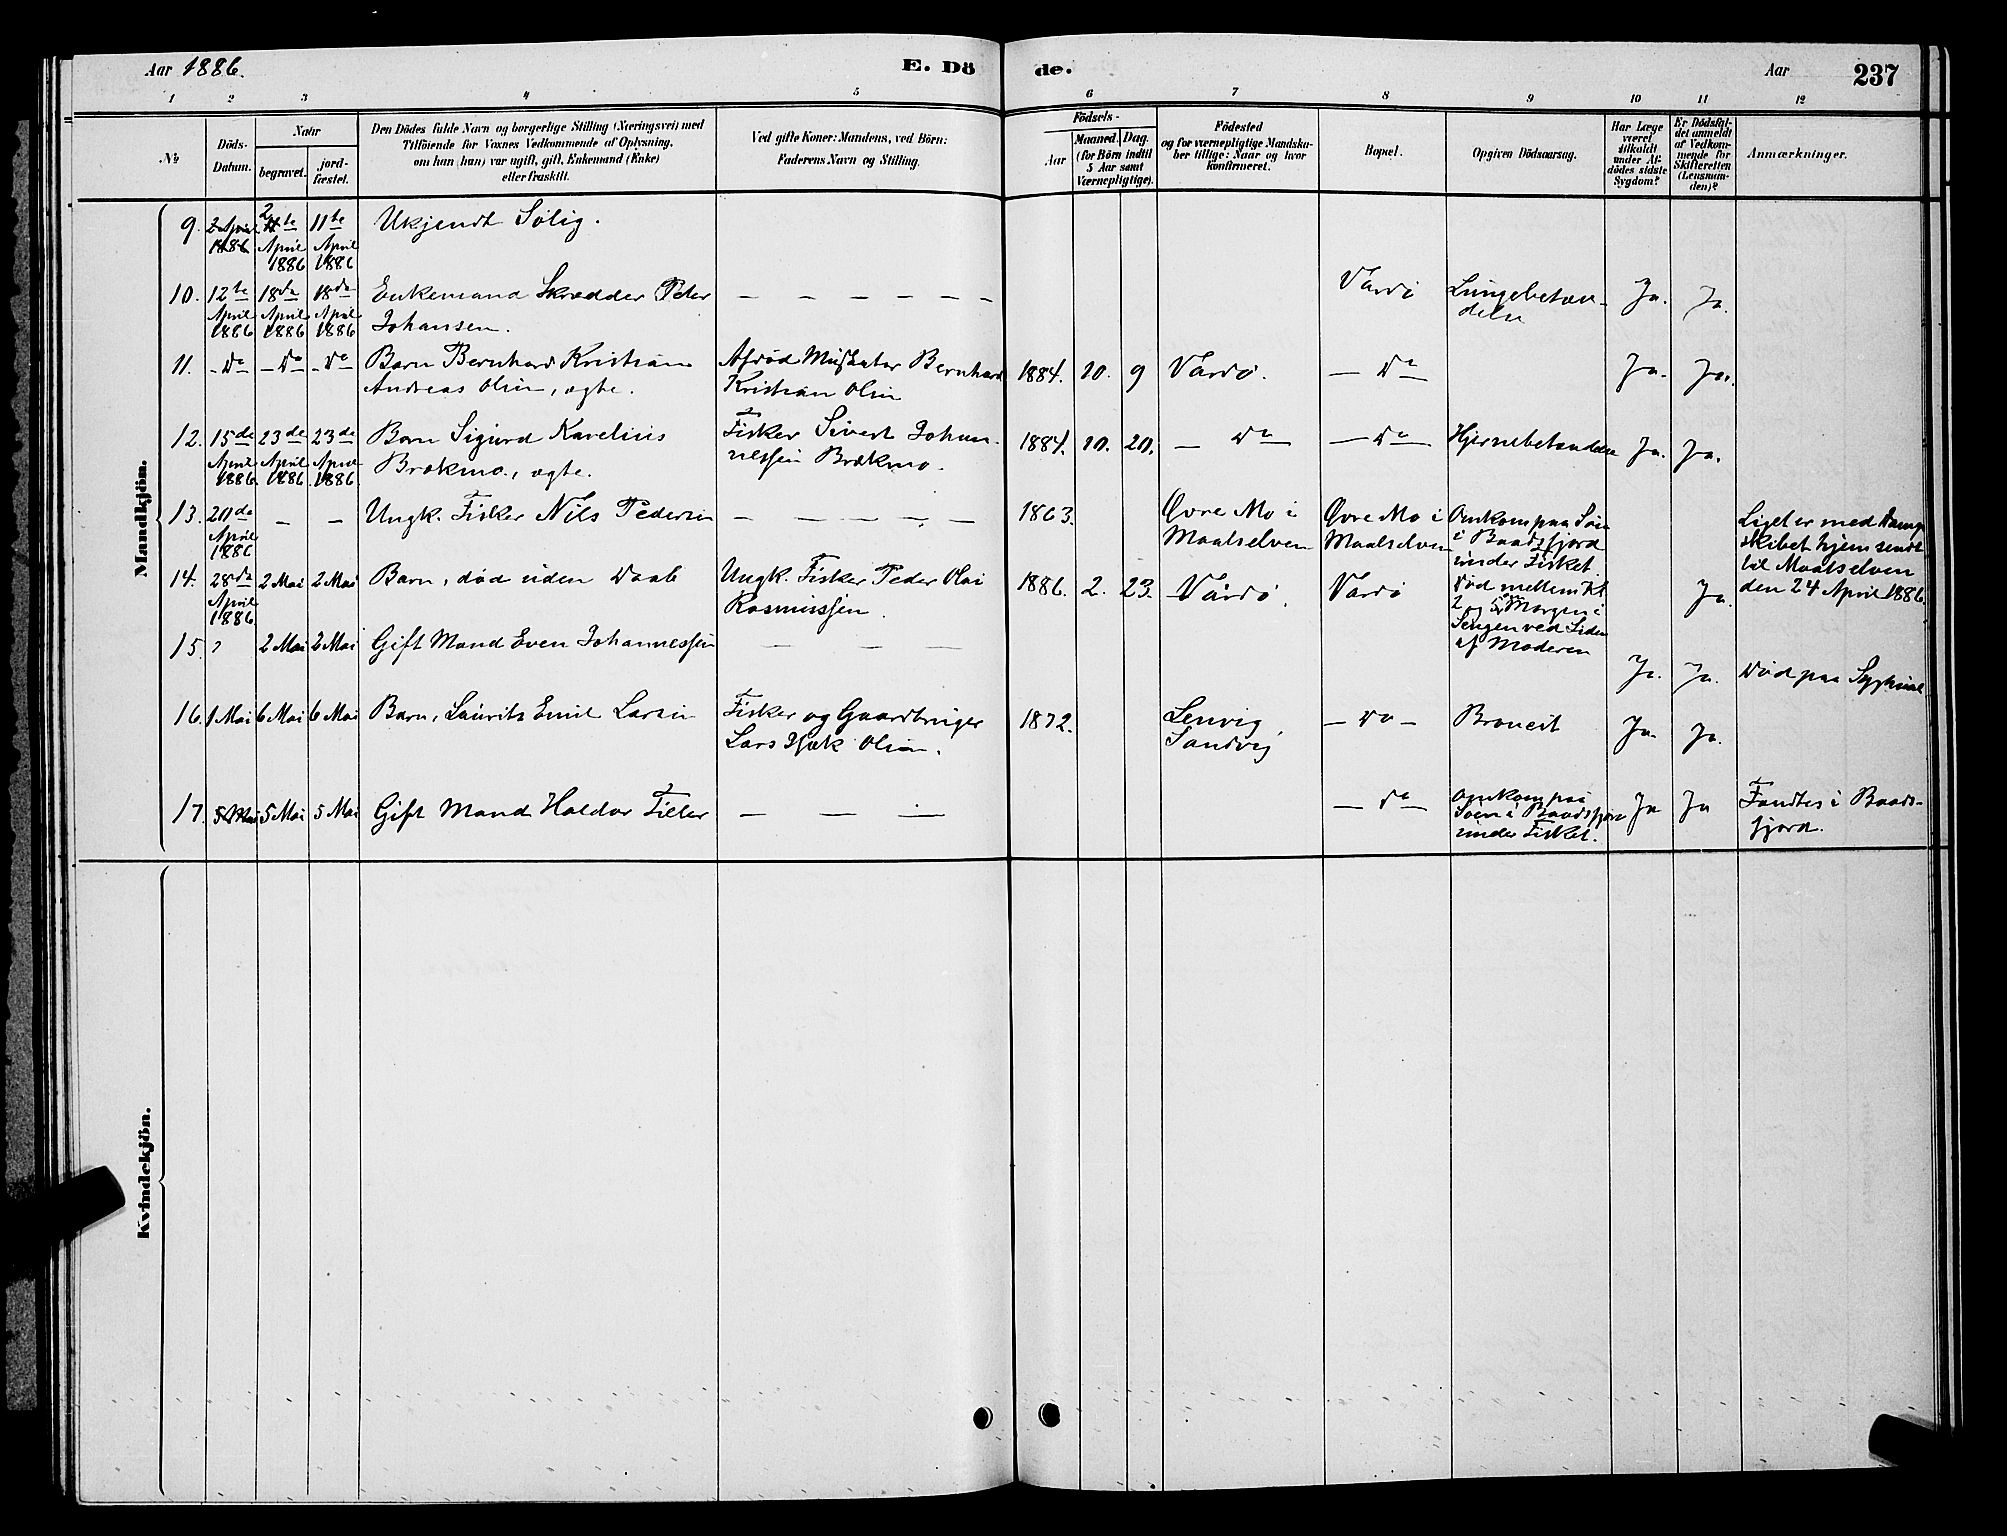 Aar 1886. E. Dö de. Aar 237
1 2 3 4 5 6 7 8 9 10 11 12
№ Döds-Datum. Naar begravet. jord-fæstet.
Den Dödes fulde Navn og borgerlige Stilling (Næringsvei) med
Tilföiende for Voxnes Vedkommende af Oplysning,
om han (hun) var ugift, gift, Enkemand (Enke)
eller fraskilt.
Ved gifte Koner: Mandens, ved Börn:
Faderens Navn og Stilling.
Födsels-
Aar Maaned. Dag.
(for Börn indtil
5 Aar samt
Værnepligtige).
Födested
og for værnepligtige Mandska-
ber tillige: Naar og hvor
konfirmeret.
Bopæl.
Opgiven Dödsaarsag.
Har Læge
været
tilkaldt
under Af-
dödes sidste
Sygdom?
Er Dödsfal-
det anmeldt
af Vedkom-
mende for
Skifteretten
(Lensman-
den)?
Anmærkninger.
Mandkjön.
9. 2 April 1886 2 11te April 1886 11te April 1886 Ukjendt Sølig.
10. 12te April 1886 18de April 1886 18de April 1886 Enkemand Skrædder Peter
Johansen. — — — — — — Vardø Lungebetæn-
delse Ja. Ja.
11. - Do - Do - Do Barn Bernhard Kristian
Andreas Olsen, ægte. Afdød Musketer Bernhard
Kristian Olsen 1884. 10. 9 Vardø. — Do — Ja. Ja.
12. 15de April 1886 23de April 1886 23de April 1886 Barn Sigurd Karelius
Brækmo., ægte. Fisker Sivert Johan-
nessen Brækmo. 1884. 10. 20. — Do — — Do — Hjernebetændelse Ja. Ja.
13. 20de April 1886 — — Ungk. Fisker Nils Pedersen — — — — — 1863. Øvre Mo i
Maalselven Øvre Mo i
Maalselven Omkom paa Søen
i Baadsfjord
under Fisket. Liget er med Damp
skibet hjemsendt
til Maalselven
den 24 April 1886.
14. 28de April 1886 2 Mai 2 Mai Barn, død uden Daab Ungk. Fisker Peder Olai
Rasmussen. 1886. 2. 23. Vardø. Vardø Død mellem Kl.
2 og 5 Morgen i
Sengen ved Siden
af Moderen Ja.
15. ? 2 Mai 2 Mai Gift Mand Even Johannessen — — — Ja. Ja. Død paa
16. 1 Mai 6 Mai 6 Mai Barn, Laurits Emil Larsen Fisker og Gaardbruger
Lars Olsen. 1872. Lenvig
Sandvig — Do — Ja. Ja.
17. 5 Mai 5 Mai 5 Mai Gift Mand Haldor Tiller — — — — Do — Omkom paa
Søen i Baadsfjord
under Fisket. Ja Ja Fandtes i Baads-
fjord.
Kvindekjön.